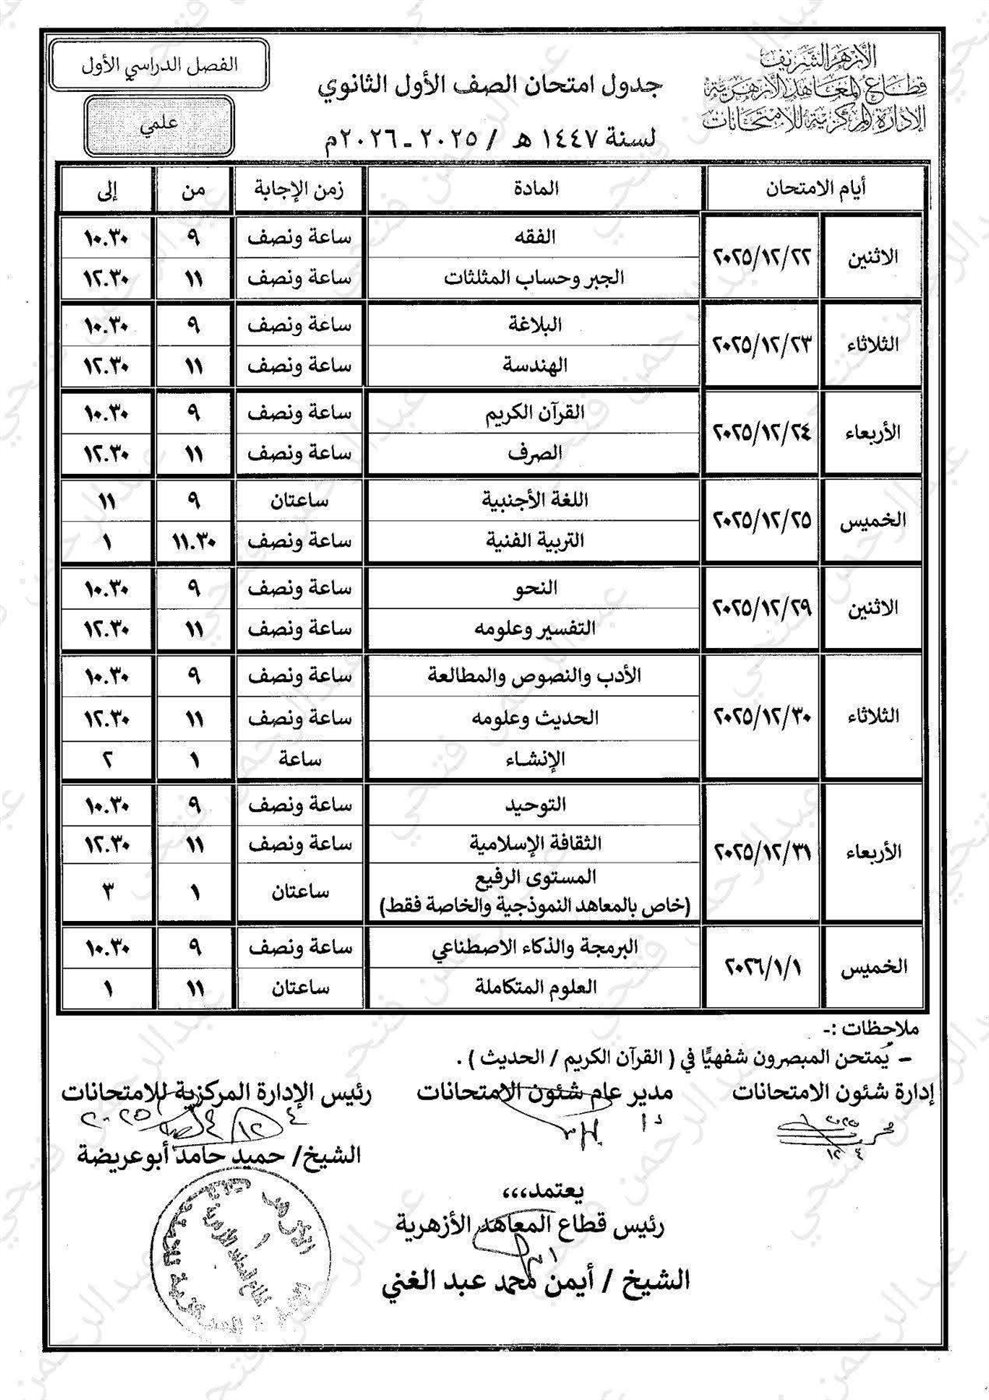 الأزهر الشريف
قطاع المعاهد الأزهرية
الإدارة المركزية للامتحانات
جدول امتحان الصف الأول الثانوي
لسنة ١٤٤٧ هـ / ٢٠٢٥ - ٢٠٢٦م
الفصل الدراسي الأول
علمي
أيام الامتحان المادة زمن الإجابة من إلى
الاثنين ٢٠٢٥/١٢/٢٢ الفقه ساعة ونصف ٩ ١٠.٣٠
الجبر وحساب المثلثات ساعة ونصف ١١ ١٢.٣٠
الثلاثاء ٢٠٢٥/١٢/٢٣ البلاغة ساعة ونصف ٩ ١٠.٣٠
الهندسة ساعة ونصف ١١ ١٢.٣٠
الأربعاء ٢٠٢٥/١٢/٢٤ القرآن الكريم ساعة ونصف ٩ ١٠.٣٠
الصرف ساعة ونصف ١١ ١٢.٣٠
الخميس ٢٠٢٥/١٢/٢٥ اللغة الأجنبية ساعتان ٩ ١١
التربية الفنية ساعة ونصف ١١.٣٠ ١
الاثنين ٢٠٢٥/١٢/٢٩ النحو ساعة ونصف ٩ ١٠.٣٠
التفسير وعلومه ساعة ونصف ١١ ١٢.٣٠
الثلاثاء ٢٠٢٥/١٢/٣٠ الأدب والنصوص والمطالعة ساعة ونصف ٩ ١٠.٣٠
الحديث وعلومه ساعة ونصف ١١ ١٢.٣٠
الإنشاء ساعة ١ ٢
الأربعاء ٢٠٢٥/١٢/٣١ التوحيد ساعة ونصف ٩ ١٠.٣٠
الثقافة الإسلامية ساعة ونصف ١١ ١٢.٣٠
المستوى الرفيع ساعتان ١ ٣
(خاص بالمعاهد النموذجية والخاصة فقط)
الخميس ٢٠٢٦/١/١ البرمجة والذكاء الاصطناعي ساعة ونصف ٩ ١٠.٣٠
العلوم المتكاملة ساعتان ١١ ١
ملاحظات :-
- يُمتحن المبصرون شفهيًا في ( القرآن الكريم / الحديث ) .
إدارة شئون الامتحانات مدير عام شئون الامتحانات رئيس الإدارة المركزية للامتحانات
الشيخ/ حميد حامد أبوعريضة
يعتمد،،،
رئيس قطاع المعاهد الأزهرية
الشيخ / أيمن محمد عبد الغني
عبدالرحمن فتحي